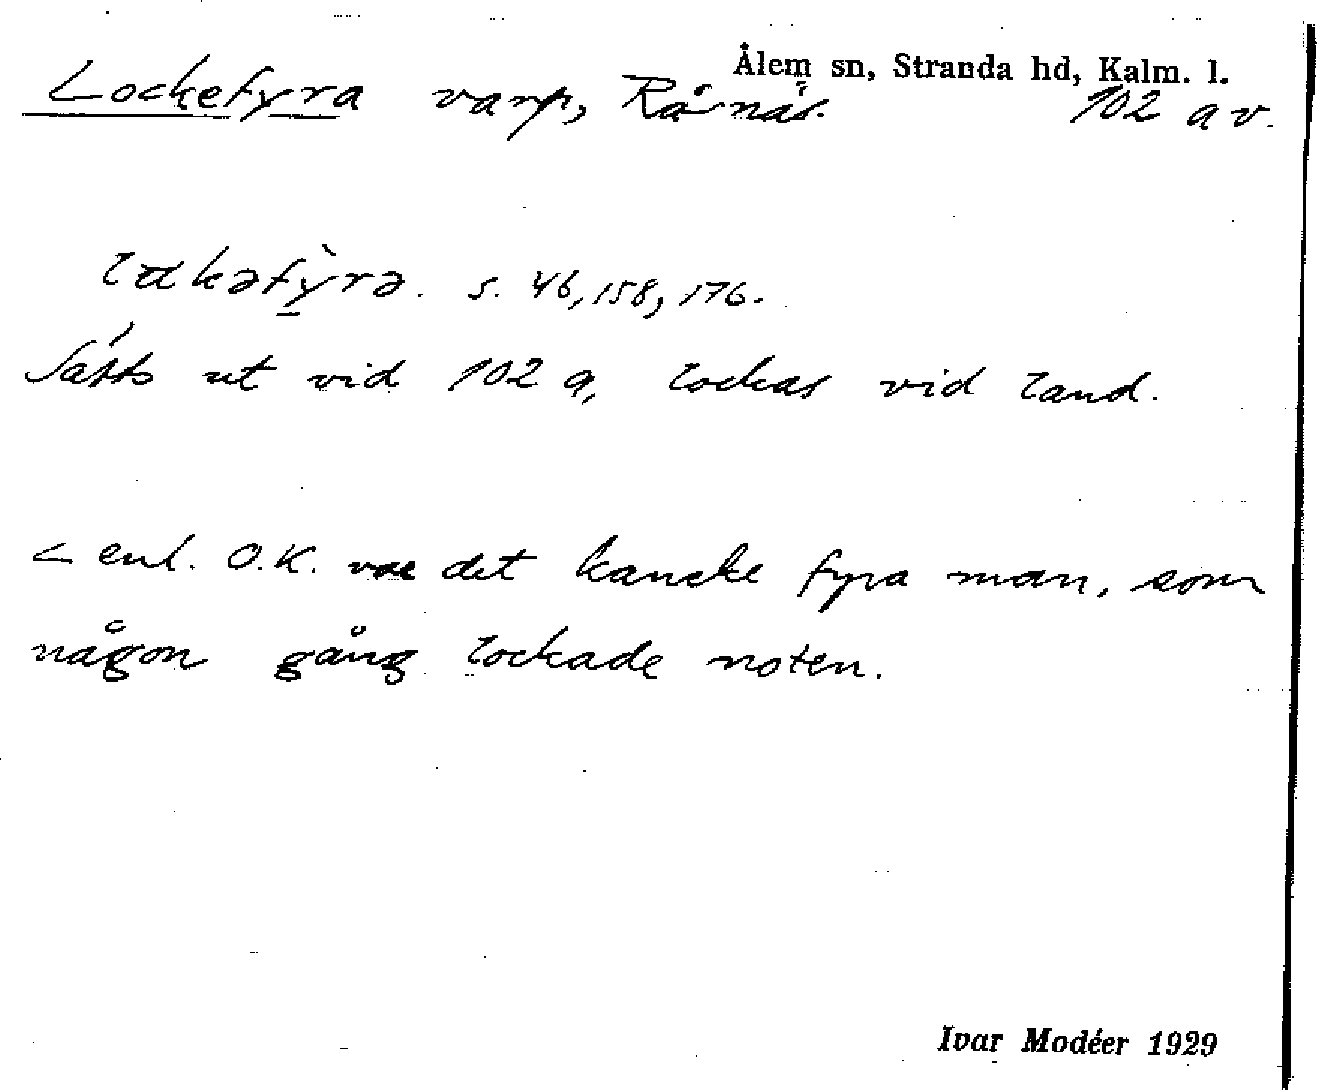 Ålem sn, Stranda hd, Kalm. l.
Lockefyra varp, Rånäs. 102 a v.
lɑkəfỳ̠rə. s. 46, 158, 176.
Sätts ut vid 102 a, lockas vid land.
< enl. O.K. var det kanske fyra man, som
någon gång lockade noten.
Ivar Modéer 1929